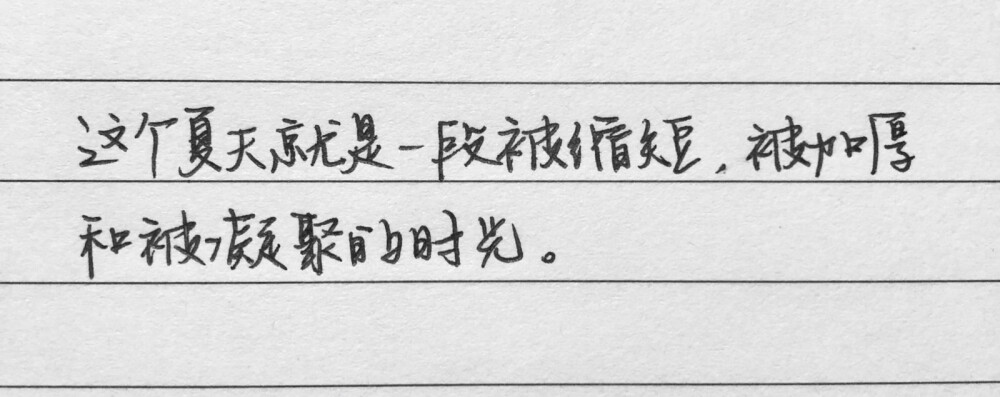 这个夏天就是一段被缩短，被加厚
和被凝聚的时光。